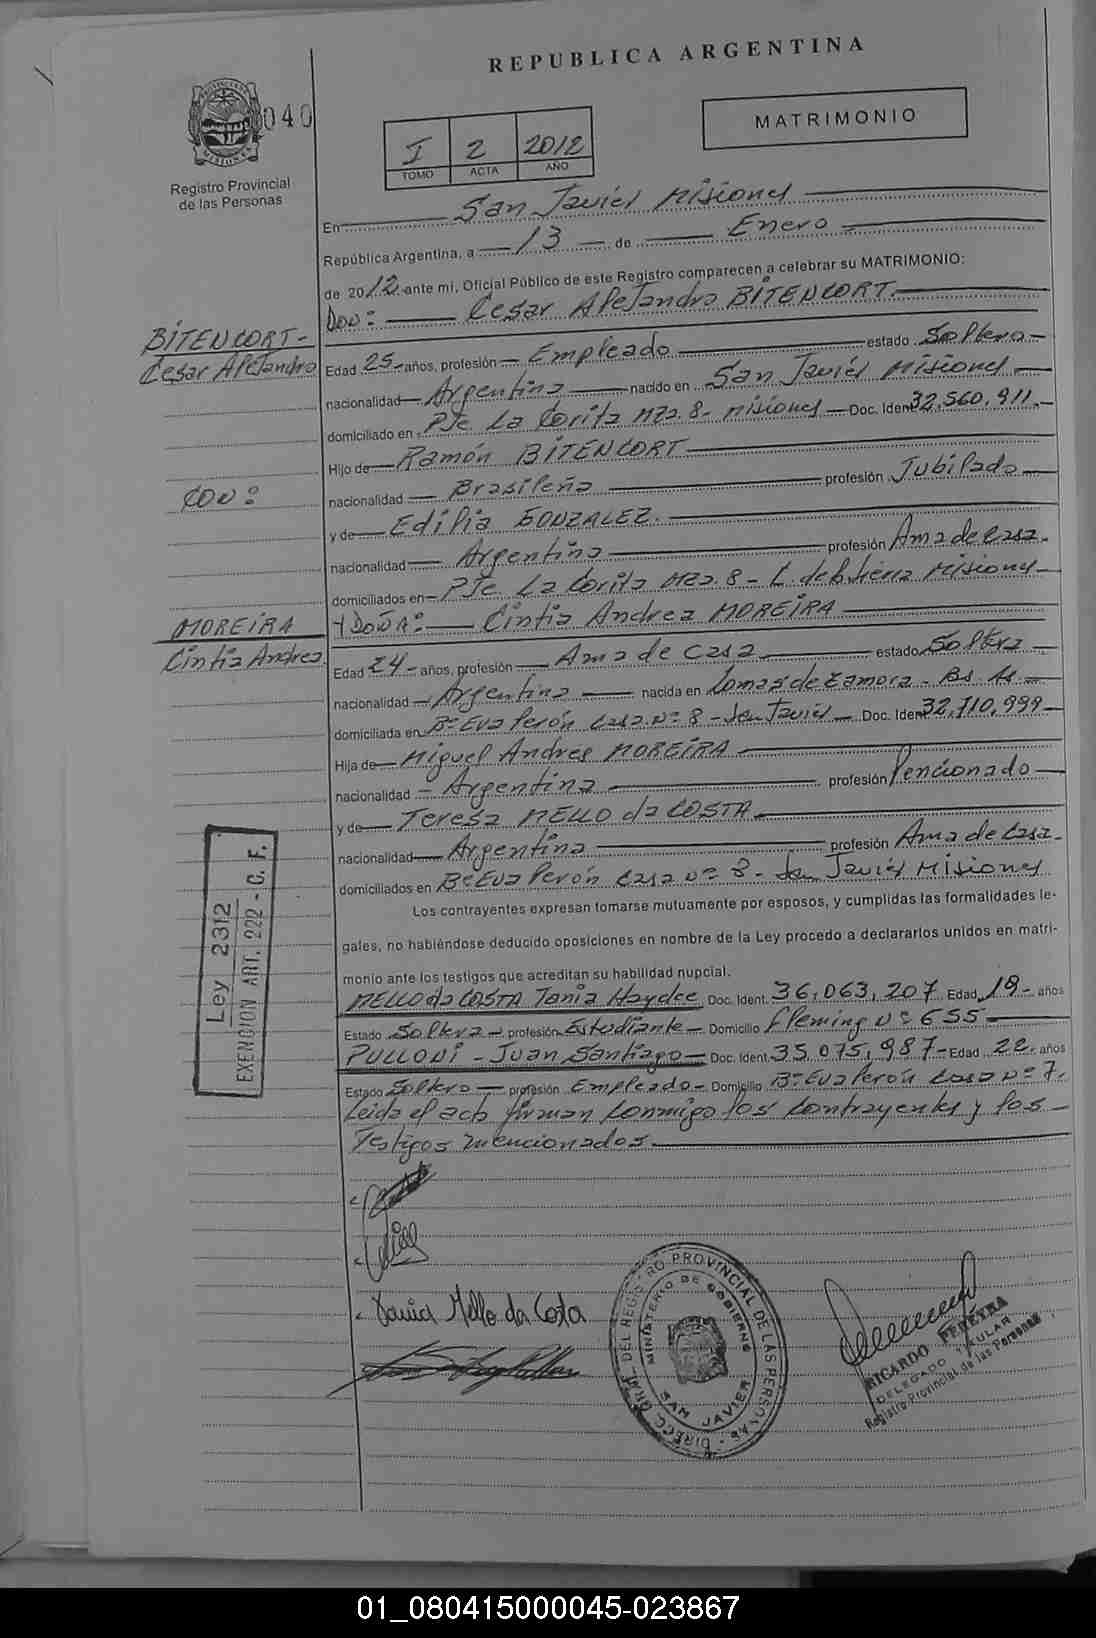 REPUBLICA ARGENTINA
040
PROVINCIA DE MISIONES
Registro Provincial
de las Personas
I 2 2012
TOMO ACTA AÑO
MATRIMONIO
En San Javier Misiones
República Argentina, a 13 de Enero
de 2012 ante mi, Oficial Público de este Registro comparecen a celebrar su MATRIMONIO:
DON: Cesar Alejandro BITENCORT.
BITENCORT-
Cesar Alejandro
Edad 25- años, profesión Empleado estado Soltero
nacionalidad Argentina nacido en San Javier Misiones
domiciliado en Pje La Lorita Mza. 8- Misiones Doc. Ident 32,560,911.
Hijo de Ramón BITENCORT
CON:
nacionalidad Brasileña profesión Jubilado
y de Edilia GONZALEZ.
nacionalidad Argentina profesión Ama de Casa.
domiciliados en Pje La Lorita Mza. 8- Misiones
MOREIRA
Cintia Andrea
Y DOÑA: Cintia Andrea MOREIRA
Edad 24- años, profesión Ama de Casa estado Soltera
nacionalidad Argentina nacida en Lomas de Zamora - Bs. As.
domiciliada en Bº Eva Perón Casa Nº 8 - San Javier Doc. Ident 32,710,999
Hija de Miguel Andres MOREIRA
nacionalidad Argentina profesión Pencionado
y de Teresa MELLO da COSTA
nacionalidad Argentina profesión Ama de Casa
domiciliados en Bº Eva Perón Casa Nº 8 - San Javier Misiones
Los contrayentes expresan tomarse mutuamente por esposos, y cumplidas las formalidades le-
gales, no habiéndose deducido oposiciones en nombre de la Ley procedo a declararlos unidos en matri-
monio ante los testigos que acreditan su habilidad nupcial.
MELLO da COSTA Tania Haydee Doc. Ident. 36,063,207 Edad 19- años
Estado Soltera profesión Estudiante Domicilio Fleming Nº 655
PULLONI - Juan Santiago Doc. Ident. 35,075,987 Edad 22. años
Estado Soltero profesión Empleado Domicilio Bº Eva Perón Casa Nº 7.
Leida el acta firman conmigo los contrayentes y los
Testigos mencionados.
Ley 2312
EXENCION ART. 222 - C. F.
Tania Mello da Costa
DIRECC. GRAL. DEL REGISTRO PROVINCIAL DE LAS PERSONAS
MINISTERIO DE GOBIERNO
SAN JAVIER
RICARDO PEREYRA
DELEGADO TITULAR
Registro Provincial de las Personas
01_080415000045-023867